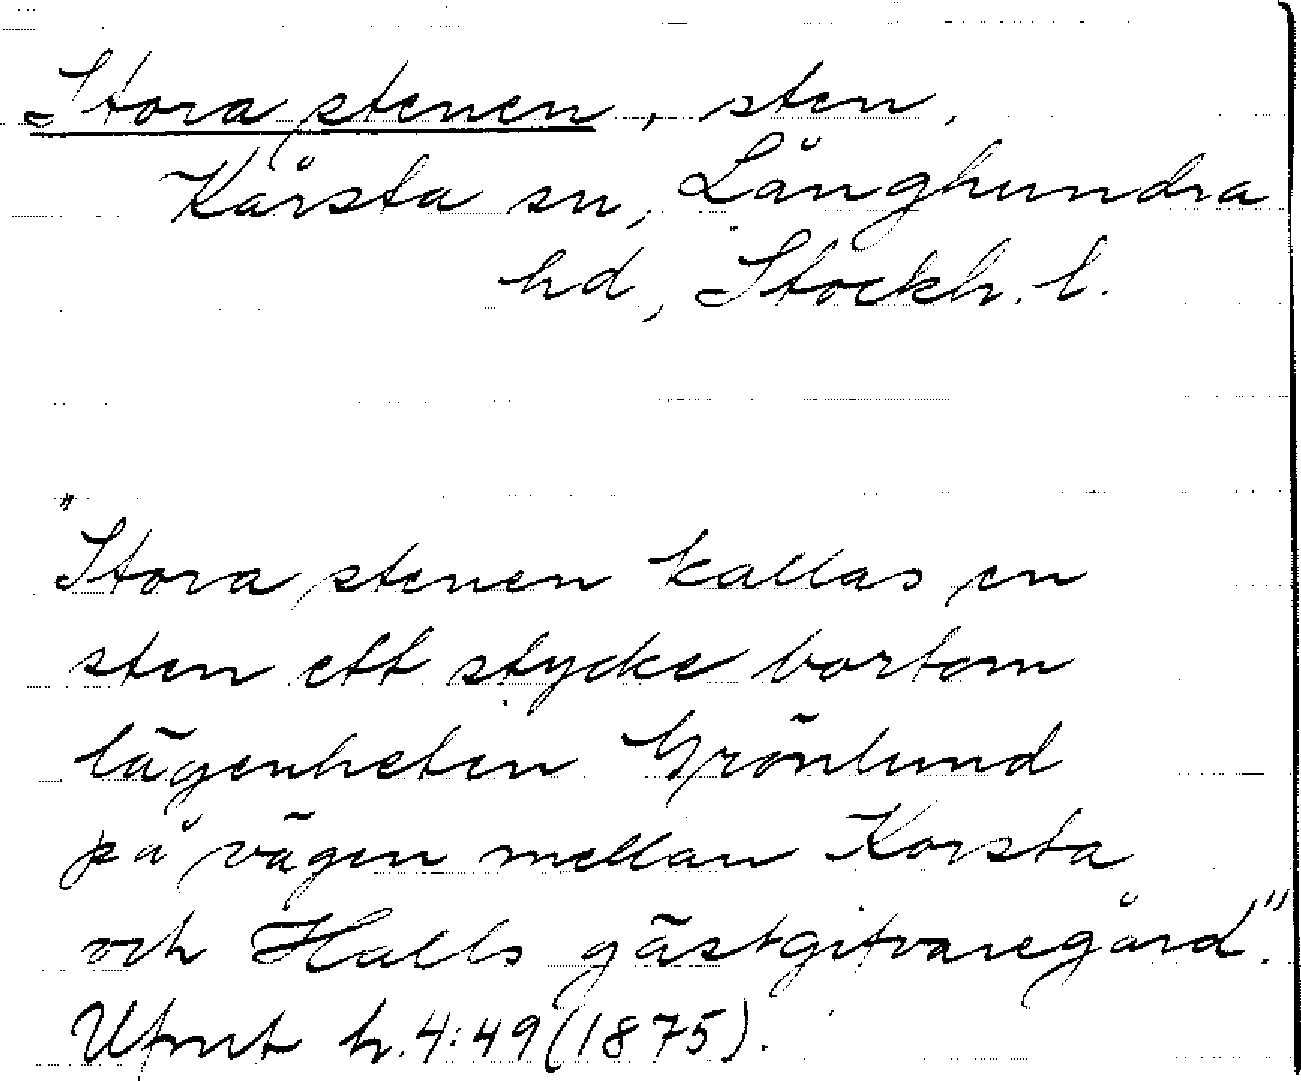 Stora stenen, sten,
Kårsta sn, Långhundra
hd, Stockh. l.
"Stora stenen kallas en
sten ett stycke bortom
lägenheten Grönlund
på vägen mellan Korsta
och Halls gästgifvaregård".
Ufmt h. 4:49 (1875).